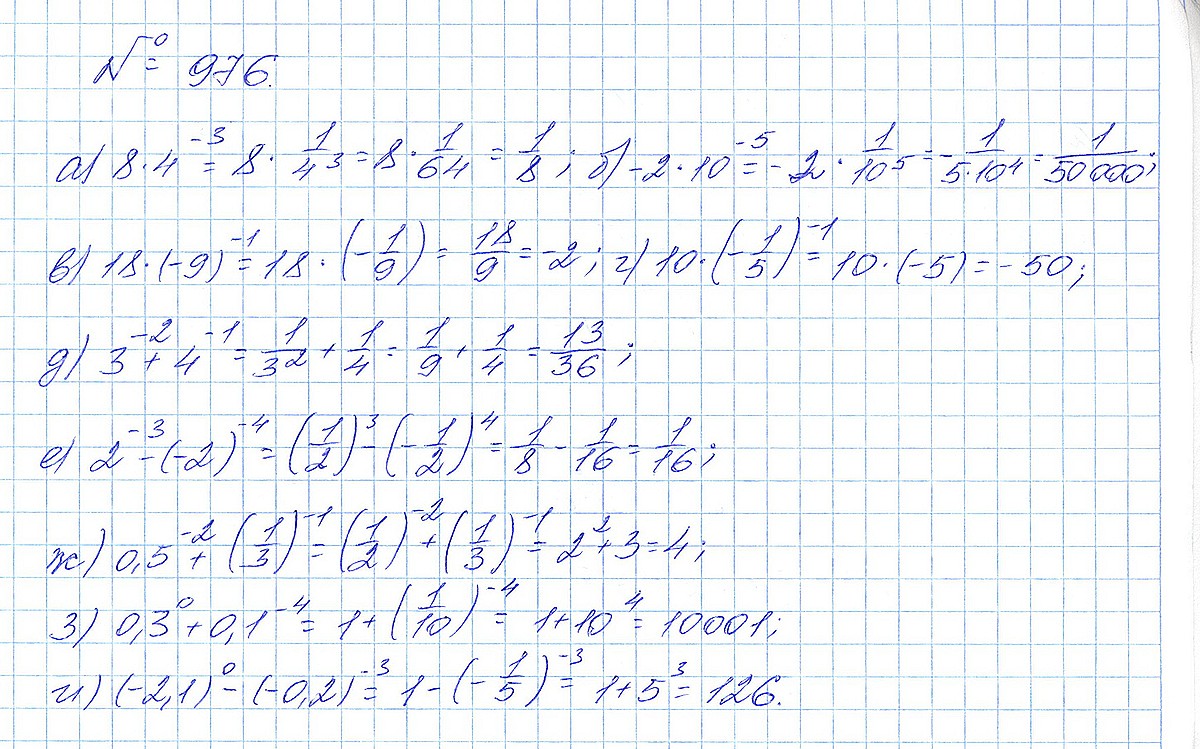 № 976.
а) 8·4⁻³ = 8·1/4³ = 8·1/64 = 1/8; б) -2·10⁻⁵ = -2·1/10⁵ = -1/5·10⁴ = 1/50000;
в) 18·(-9)⁻¹ = 18·(-1/9) = 18/9 = -2; г) 10·(-1/5)⁻¹ = 10·(-5) = -50;
д) 3⁻² + 4⁻¹ = 1/3² + 1/4 = 1/9 + 1/4 = 13/36;
е) 2⁻³ - (-2)⁻⁴ = (1/2)³ - (-1/2)⁴ = 1/8 - 1/16 = 1/16;
ж) 0,5⁻² + (1/3)⁻¹ = (1/2)⁻² + (1/3)⁻¹ = 2² + 3 = 4;
з) 0,3⁰ + 0,1⁻⁴ = 1 + (1/10)⁻⁴ = 1 + 10⁴ = 10001;
и) (-2,1)⁰ - (-0,2)⁻³ = 1 - (-1/5)⁻³ = 1 + 5³ = 126.